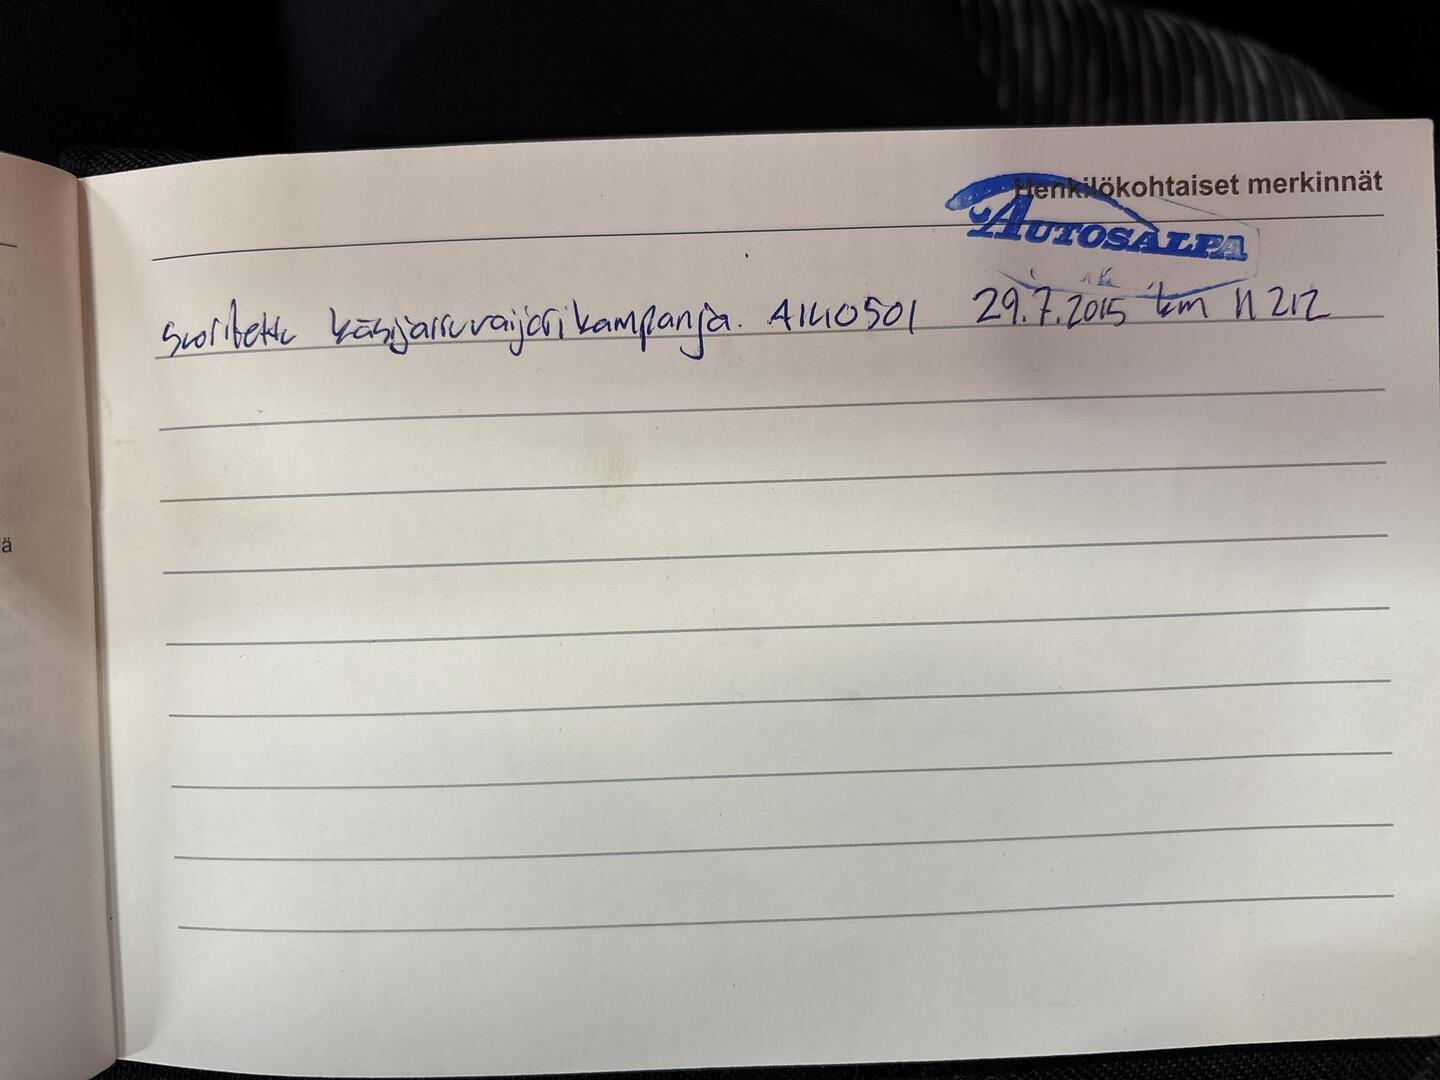 Henkilökohtaiset merkinnät
AUTOSALPA
Suoritettu käsijarruvaijerikampanja. A140501 29.7.2015 km 11212
ä